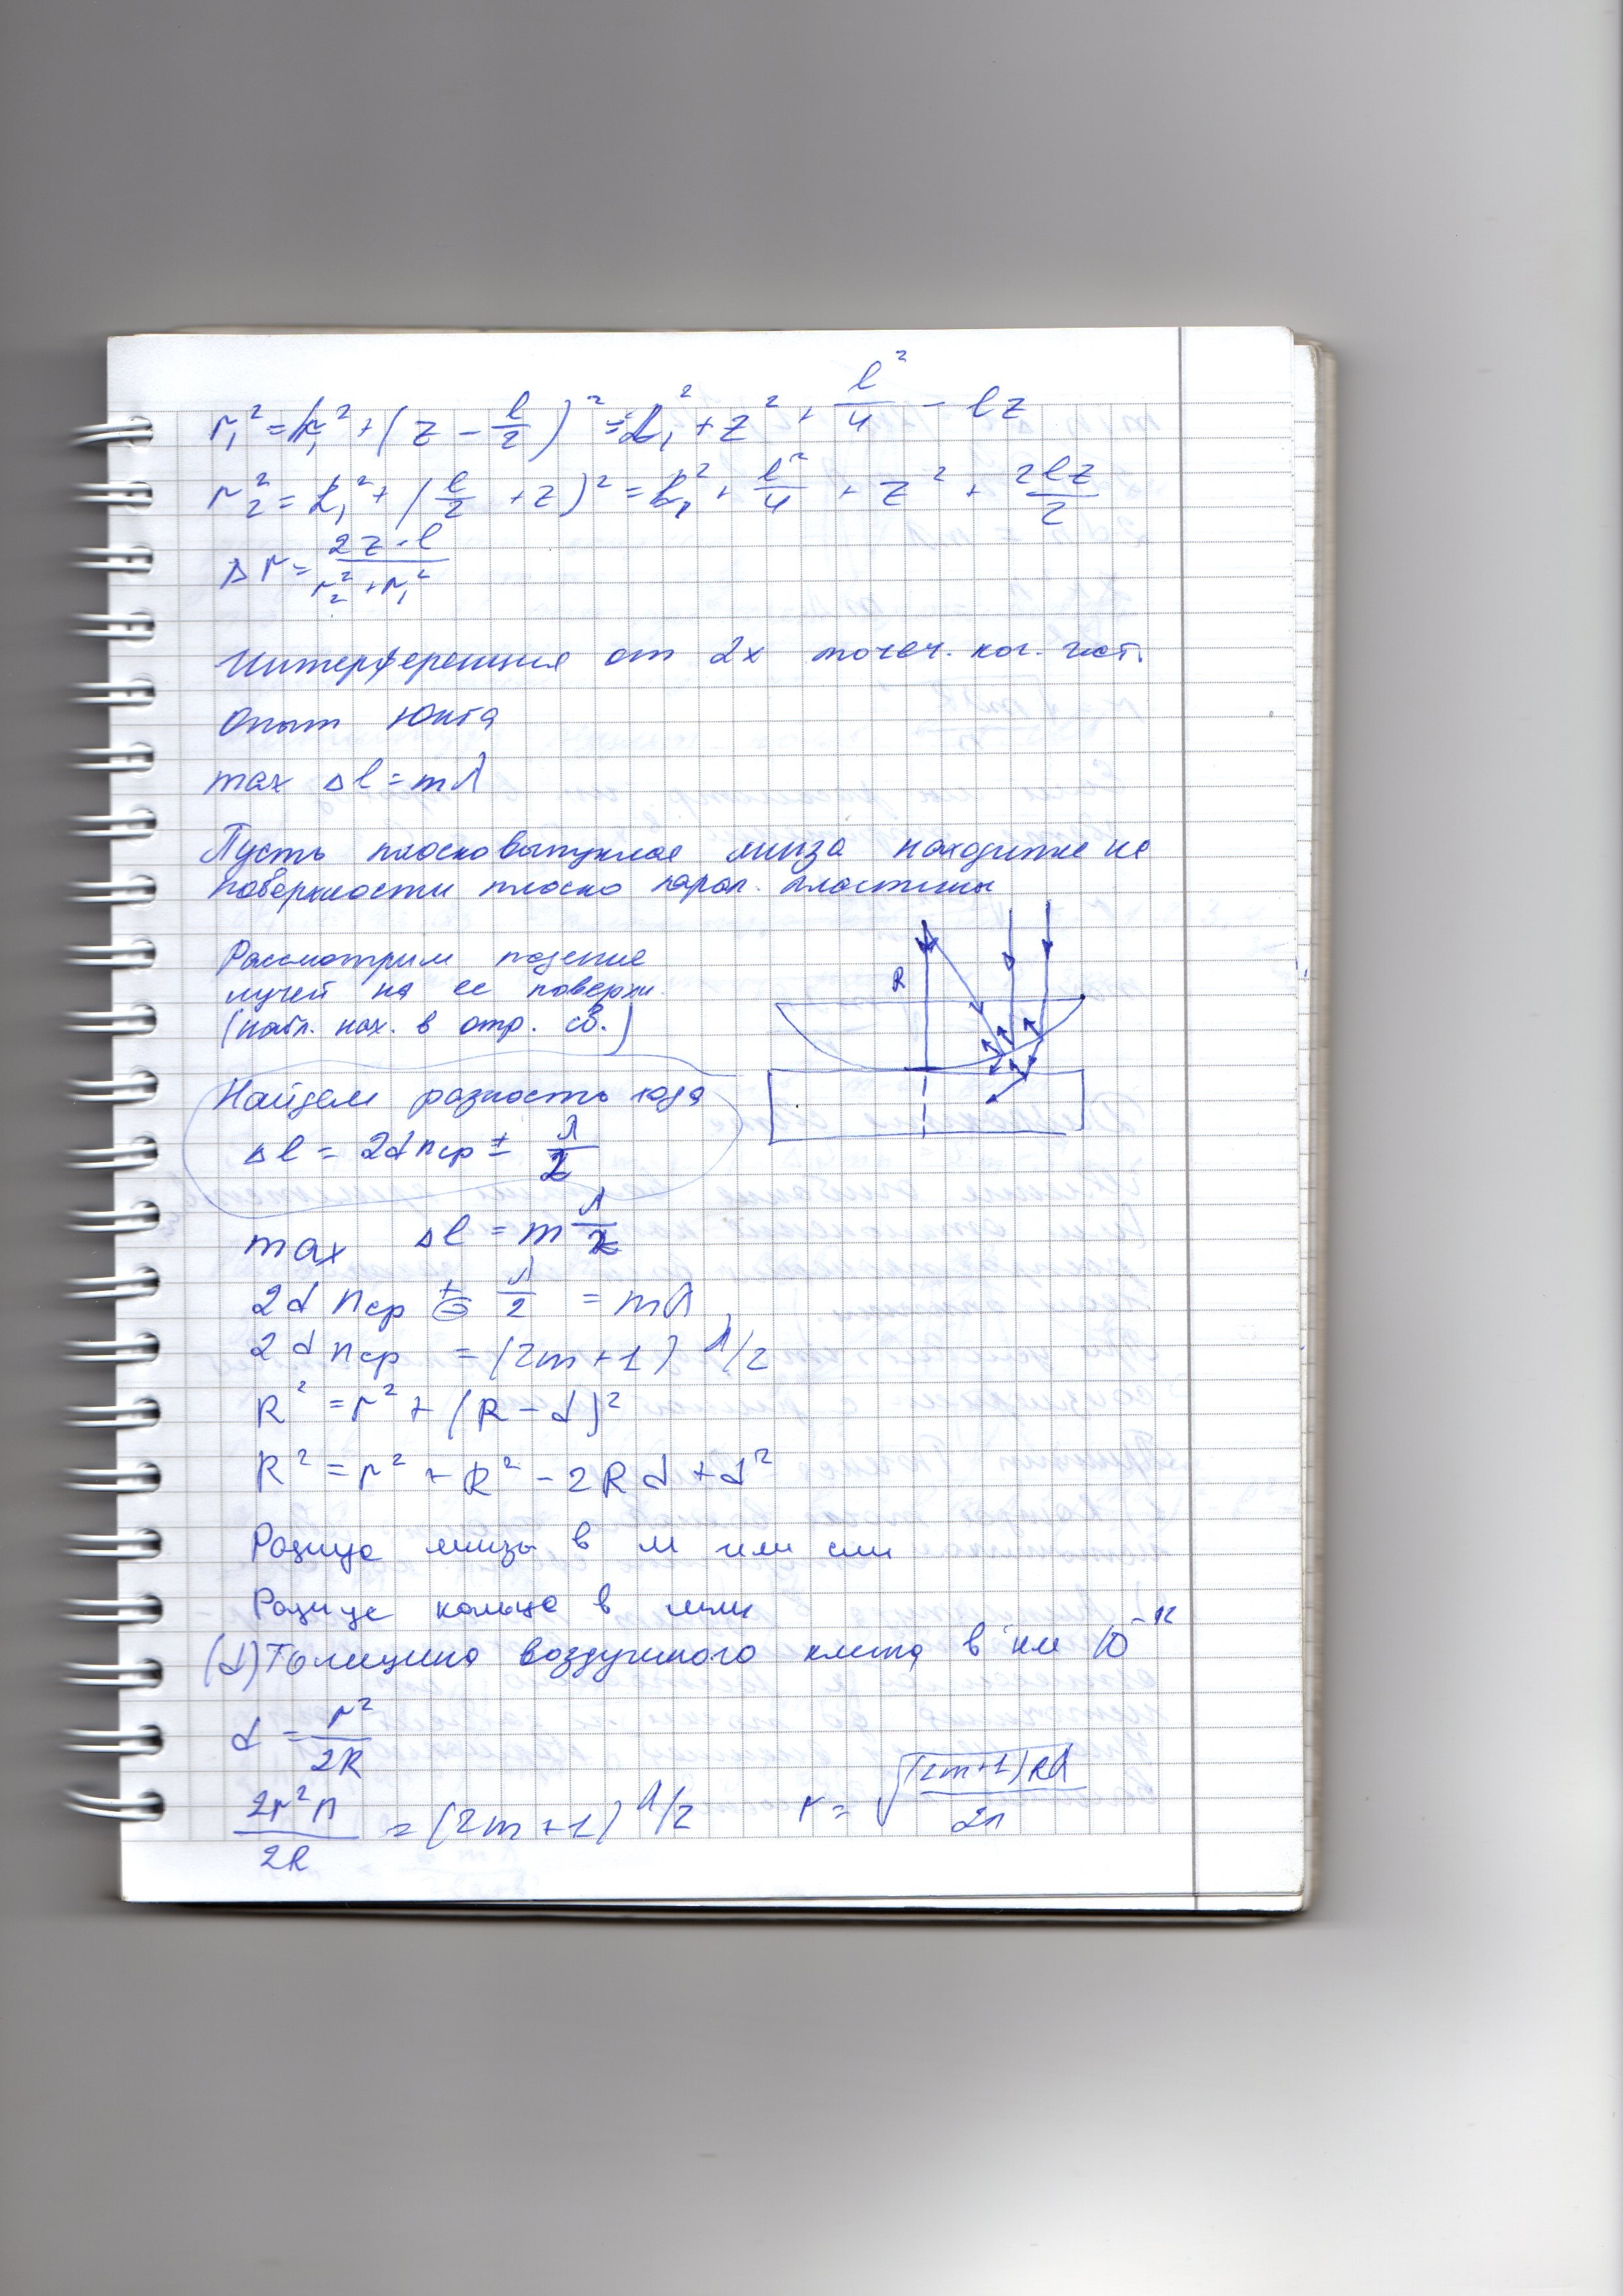 r₁² = L₁² + (z − l/2)² = L₁² + z² + l²/4 − lz
r₂² = L₁² + (l/2 + z)² = L₁² + l²/4 + z² + 2lz/2
Δr = 2z·l / (r₂² + r₁²)
Интерференция от 2х точеч. ког. ист.
Опыт Юнга
max Δl = mλ
Пусть плосковыпуклая линза находится на
поверхности плоско парал. пластины
Рассмотрим падение
лучей на ее поверхн.
(набл. нах. в отр. св.)
R
Найдем разность хода
Δl = 2d nср ± λ/2
max Δl = m λ/2
2d nср ± λ/2 = mλ
2d nср = (2m+1) λ/2
R² = r² + (R − d)²
R² = r² + R² − 2Rd + d²
Радиус линзы в м или см
Радиус кольца в мм
(d) Толщина воздушного клина в нм 10⁻¹²
d = r²/2R
2r²n/2R = (2m+1) λ/2 r = √((2m+1)Rλ/2n)